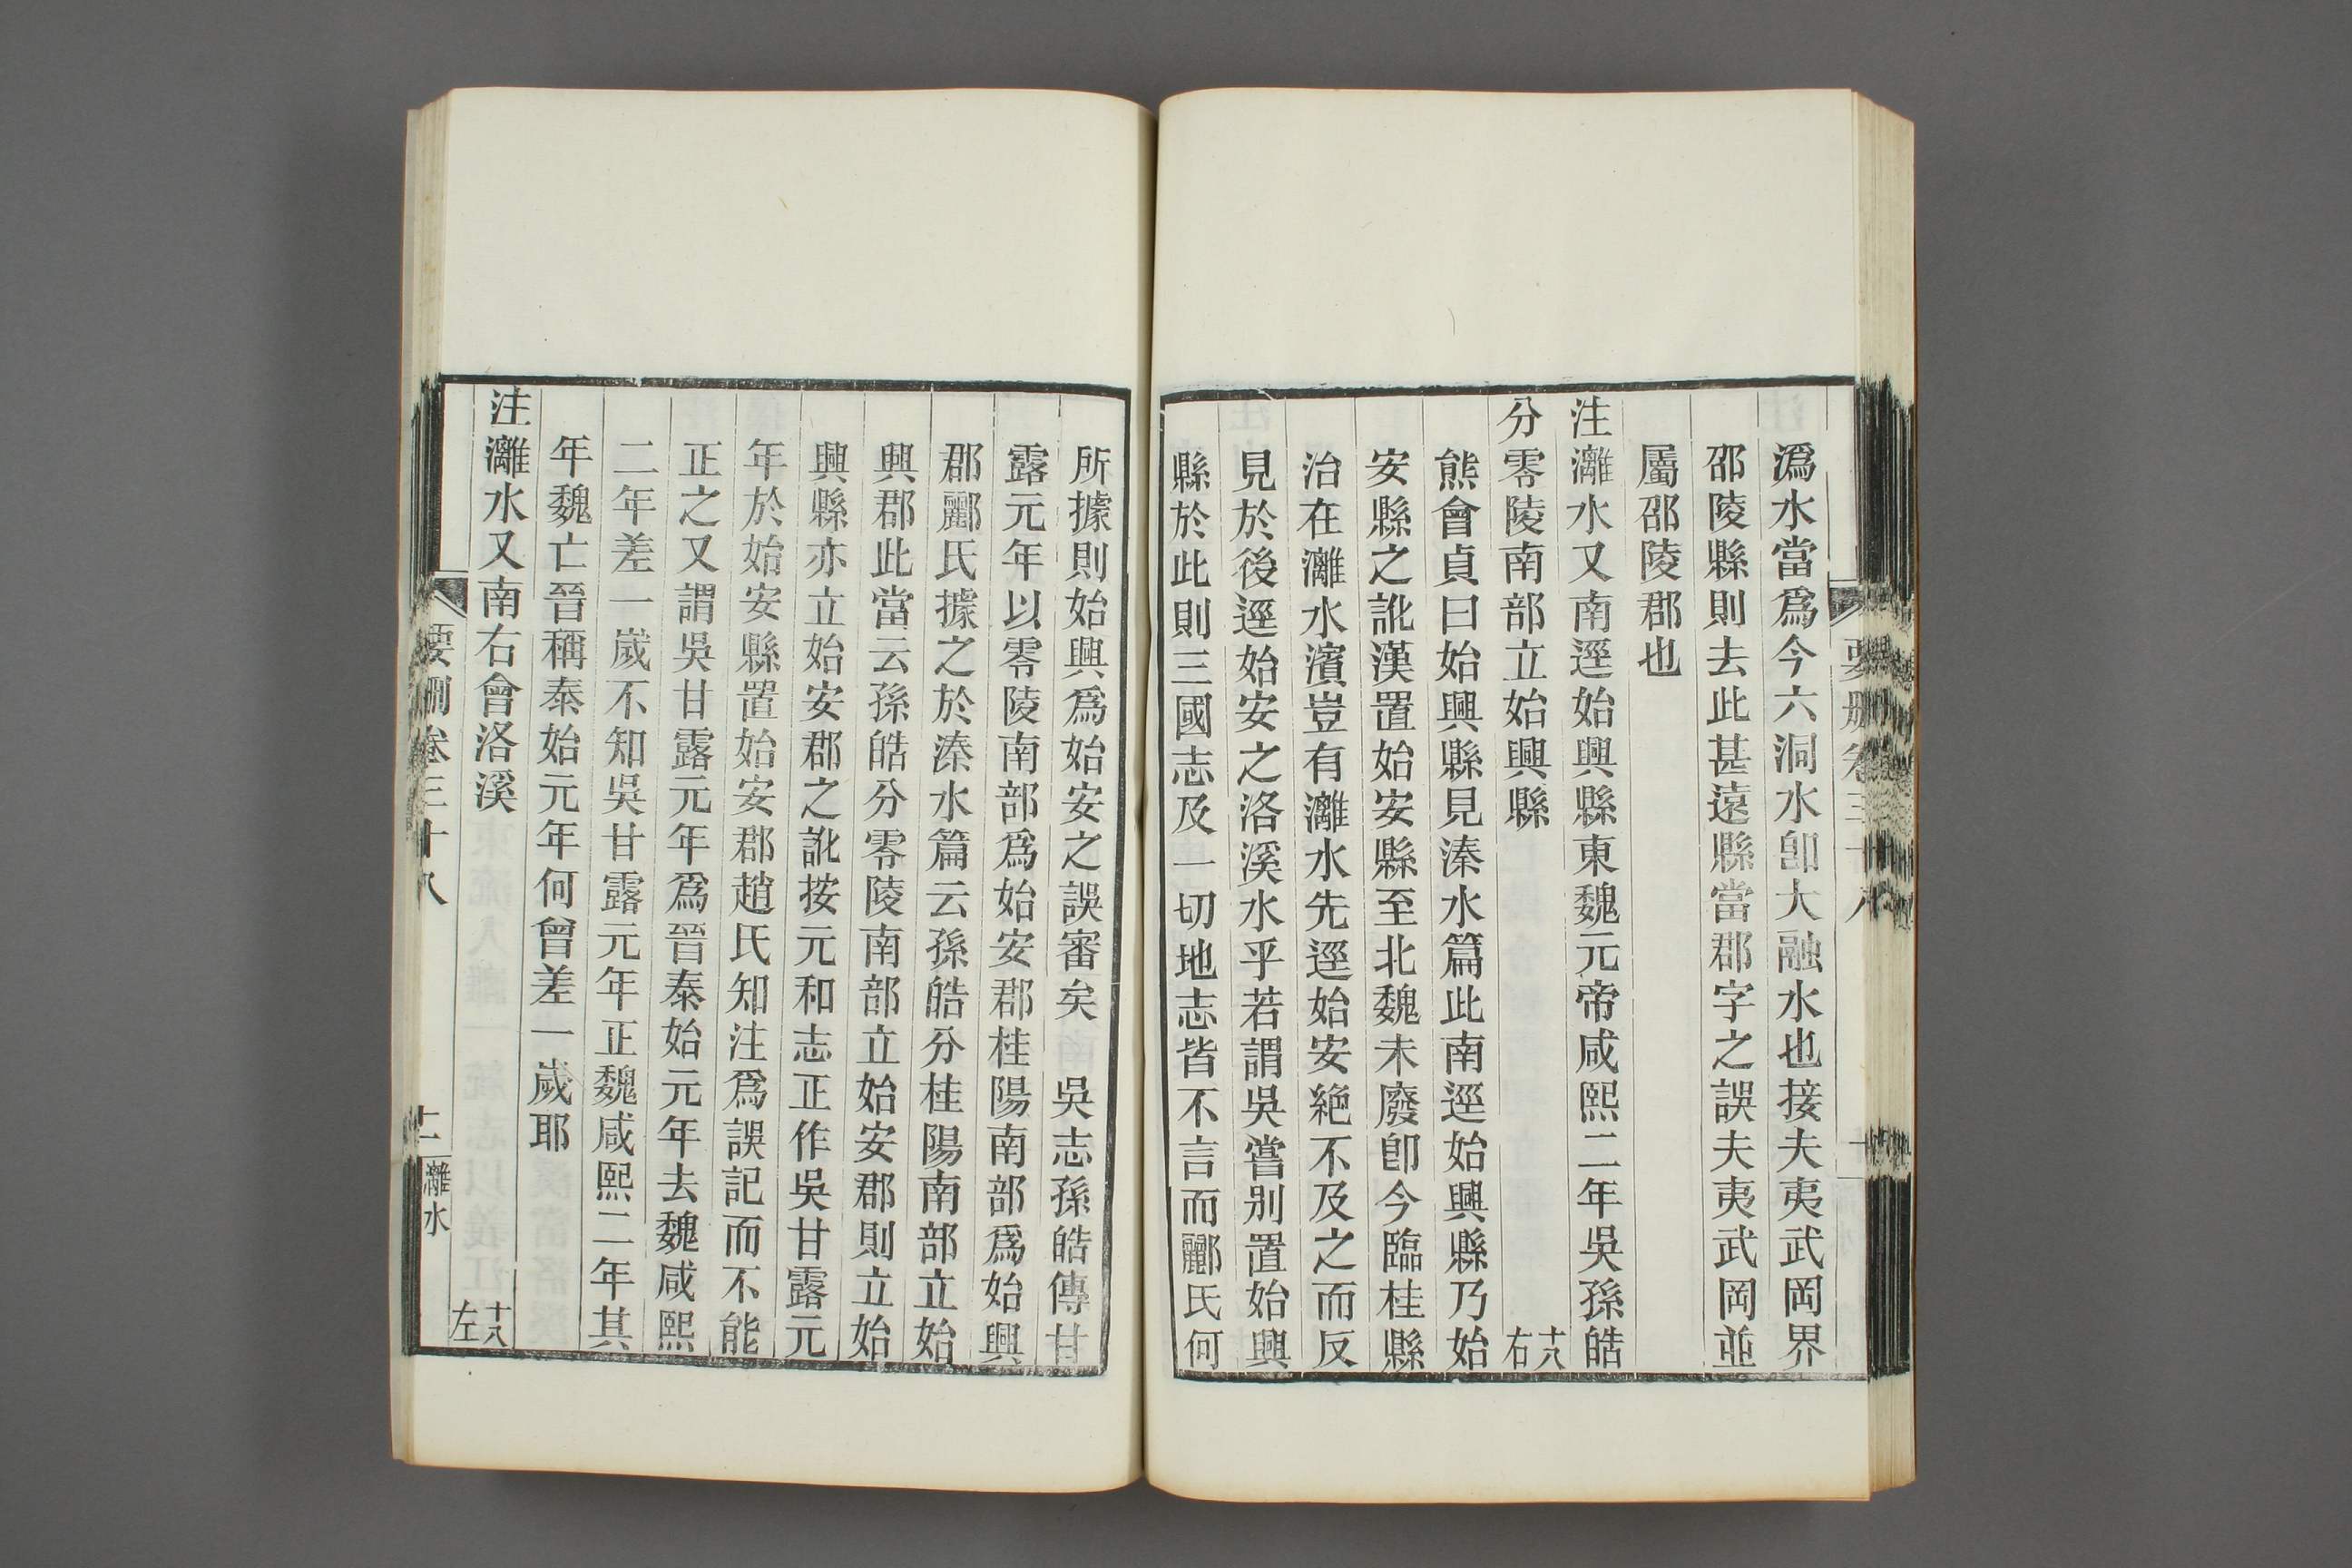 潙水當爲今六洞水卽大融水也接夫夷武岡界
邵陵縣則去此甚遠縣當郡字之誤夫夷武岡並
屬邵陵郡也
注灕水又南逕始興縣東魏元帝咸熙二年吳孫皓
分零陵南部立始興縣 十八右
熊會貞曰始興縣見溱水篇此南逕始興縣乃始
安縣之訛漢置始安縣至北魏未廢卽今臨桂縣
治在灕水濱豈有灕水先逕始安絶不及之而反
見於後逕始安之洛溪水乎若謂吳嘗別置始興
縣於此則三國志及一切地志皆不言而酈氏何
所據則始興爲始安之誤審矣 吳志孫皓傳甘
露元年以零陵南部爲始安郡桂陽南部爲始興
郡酈氏據之於溱水篇云孫皓分桂陽南部立始
興郡此當云孫皓分零陵南部立始安郡則立始
興縣亦立始安郡之訛按元和志正作吳甘露元
年於始安縣置始安郡趙氏知注爲誤記而不能
正之又謂吳甘露元年爲晉泰始元年去魏咸熙
二年差一歲不知吳甘露元年正魏咸熙二年其
年魏亡晉稱泰始元年何曾差一歲耶
注灕水又南右會洛溪 十八左
要刪卷三十八 十一 灕水